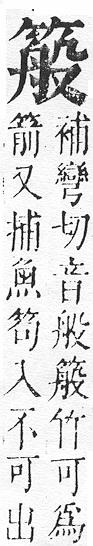 補彎切音般竹可為
箭又捕魚笱入不可出